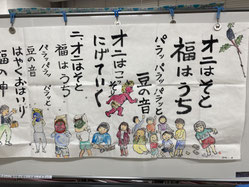 オニはそと
福はうち
パラッパラッパラッと
豆の音
オニはこっそり
にげていく
オニはそと
福はうち
パラッパラッパラッと
豆の音
はやくおはいり
福の神